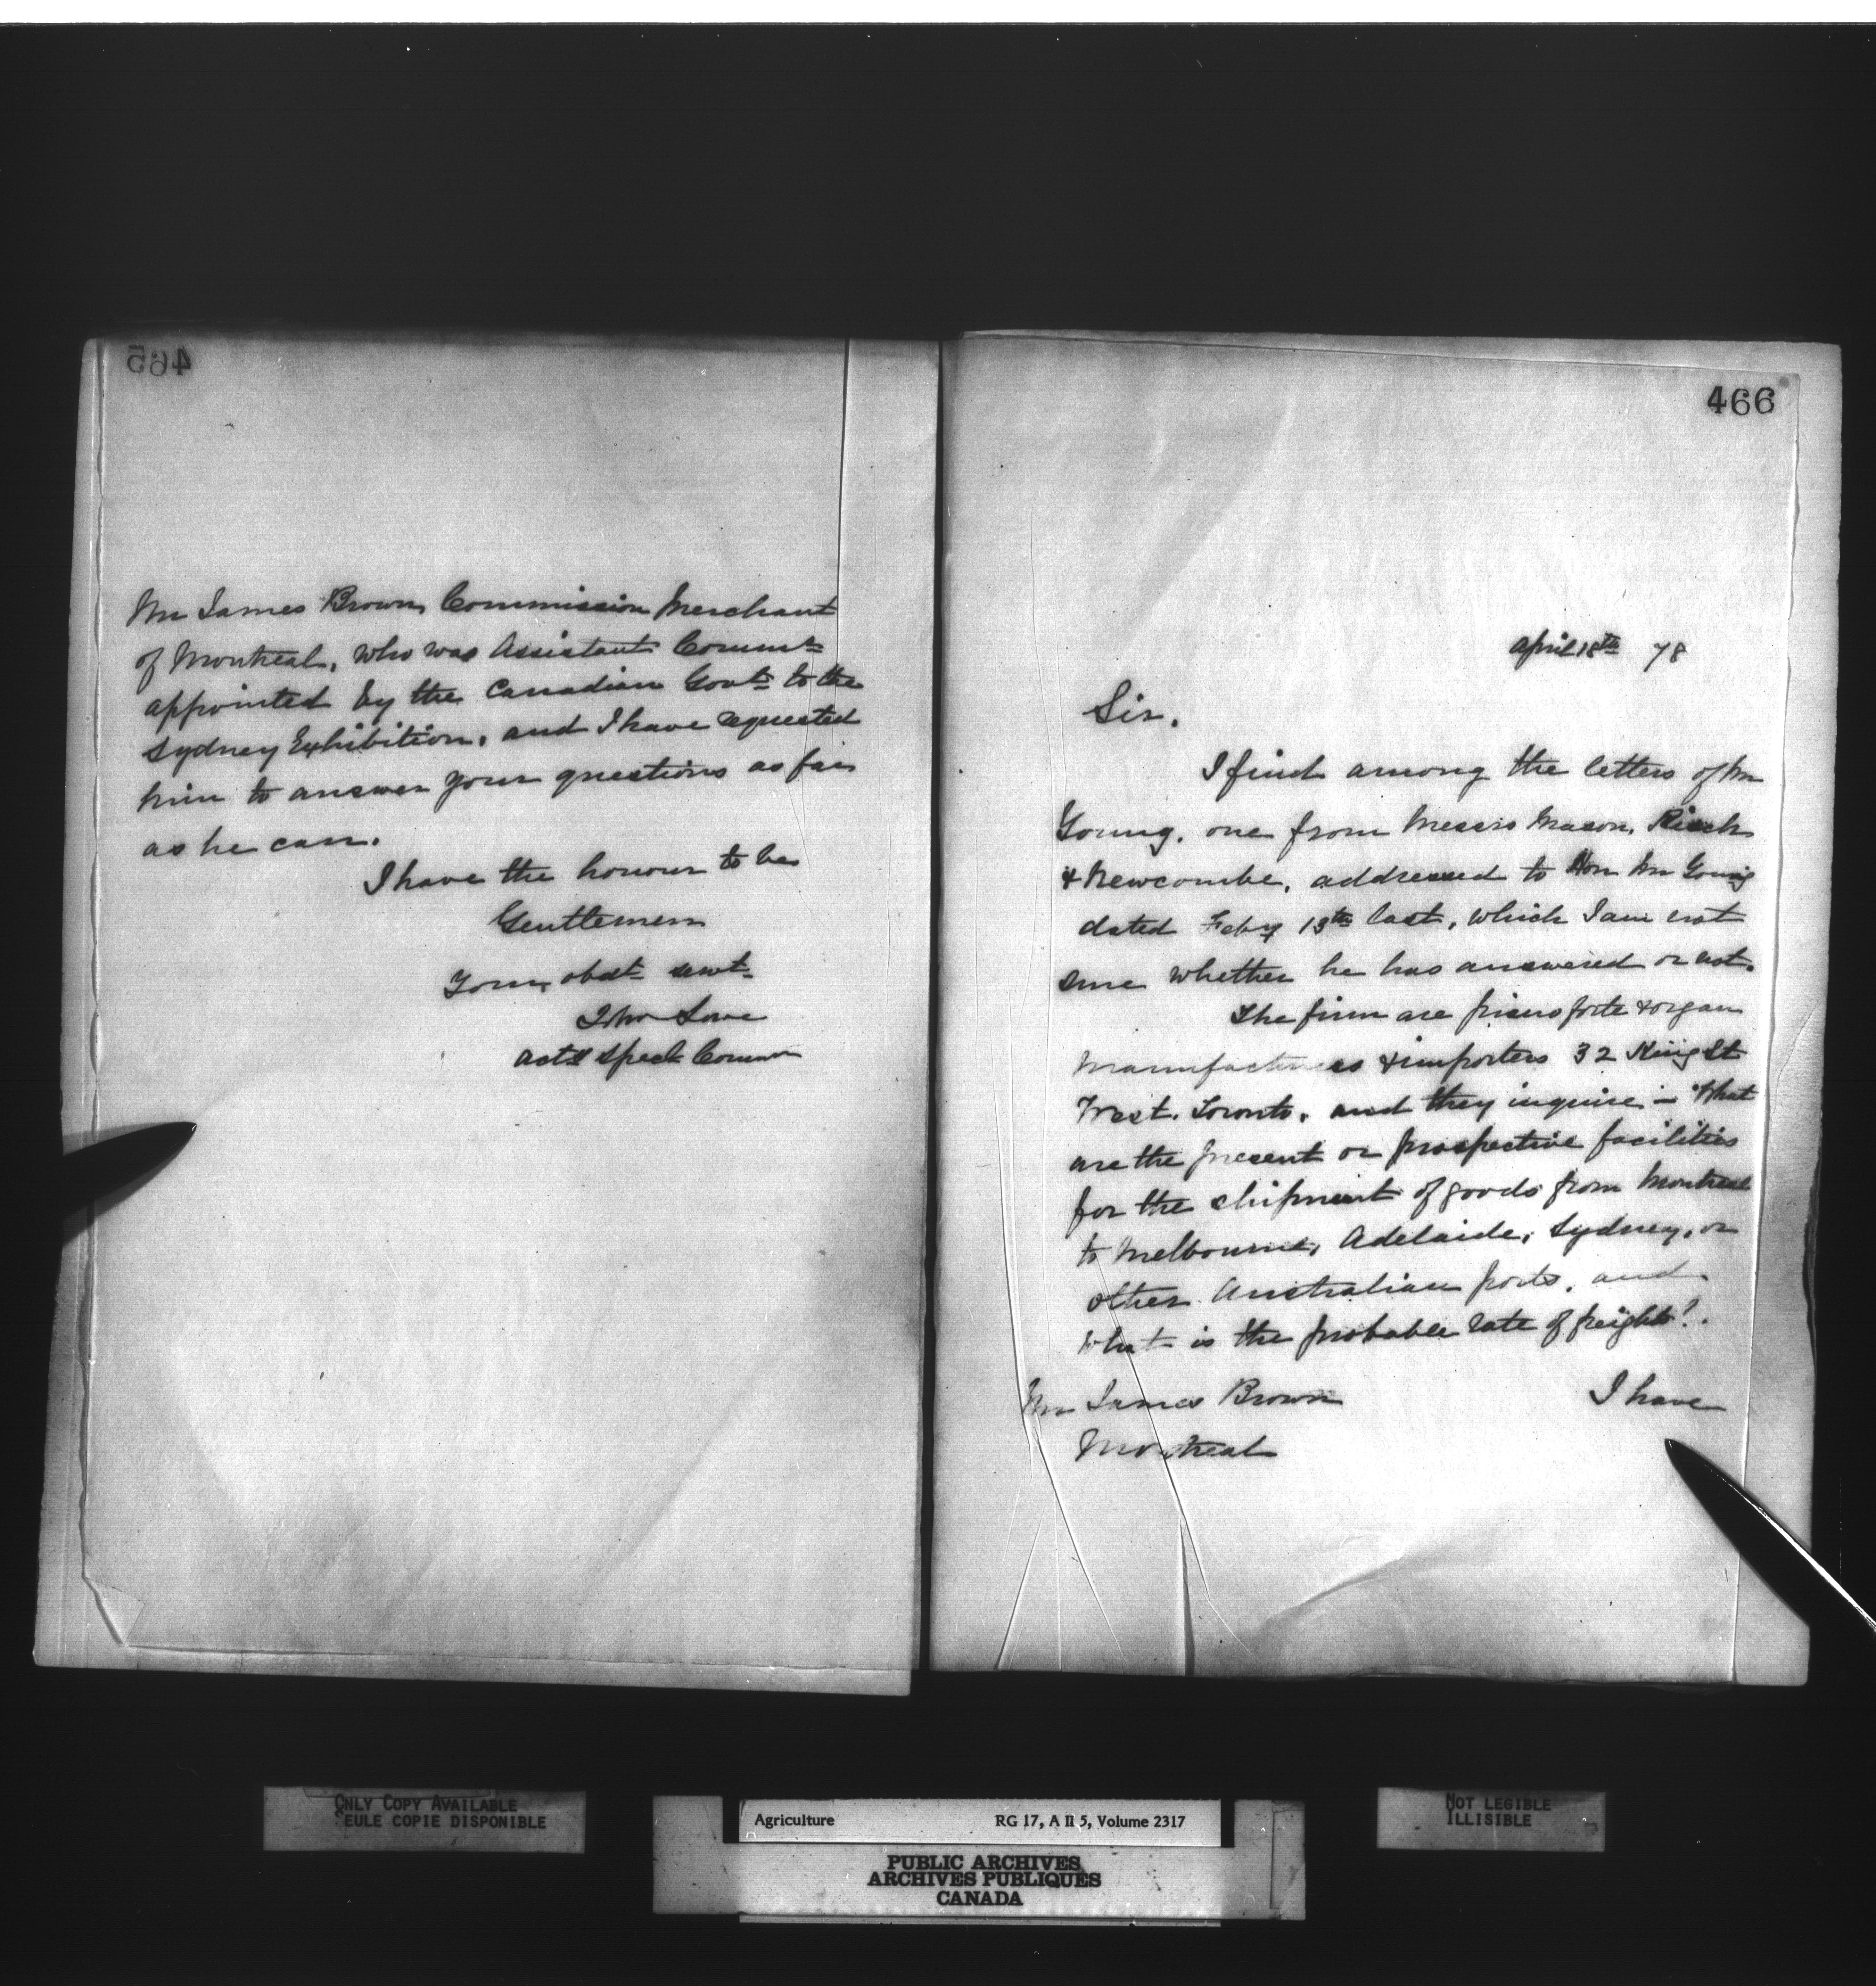 465
Mr James Brown, Commission Merchant
of Montreal, who was Assistant Commr
appointed by the Canadian Govt to the
Sydney Exhibition, and I have requested
him to answer your questions as far
as he can.
I have the honour to be
Gentlemen
Your obdt servt
John Lowe
Actg Specl Commr
466
April 18th 78
Sir.
I find among the letters of Mr
Young, one from Messrs Mason, Risch
& Newcombe, addressed to Hon Mr Young
dated Feby 13th last, which I am not
sure whether he has answered or not.
The firm are pianoforte & organ
manufacturers & importers 32 King St
West. Toronto, and they inquire – "What
are the present or prospective facilities
for the shipment of goods from Montreal
to Melbourne, Adelaide, Sydney, or
other Australian ports, and
what is the probable rate of freight?"
I have
Mr James Brown
Montreal
ONLY COPY AVAILABLE
SEULE COPIE DISPONIBLE
Agriculture RG 17, A II 5, Volume 2317
PUBLIC ARCHIVES
ARCHIVES PUBLIQUES
CANADA
NOT LEGIBLE
ILLISIBLE